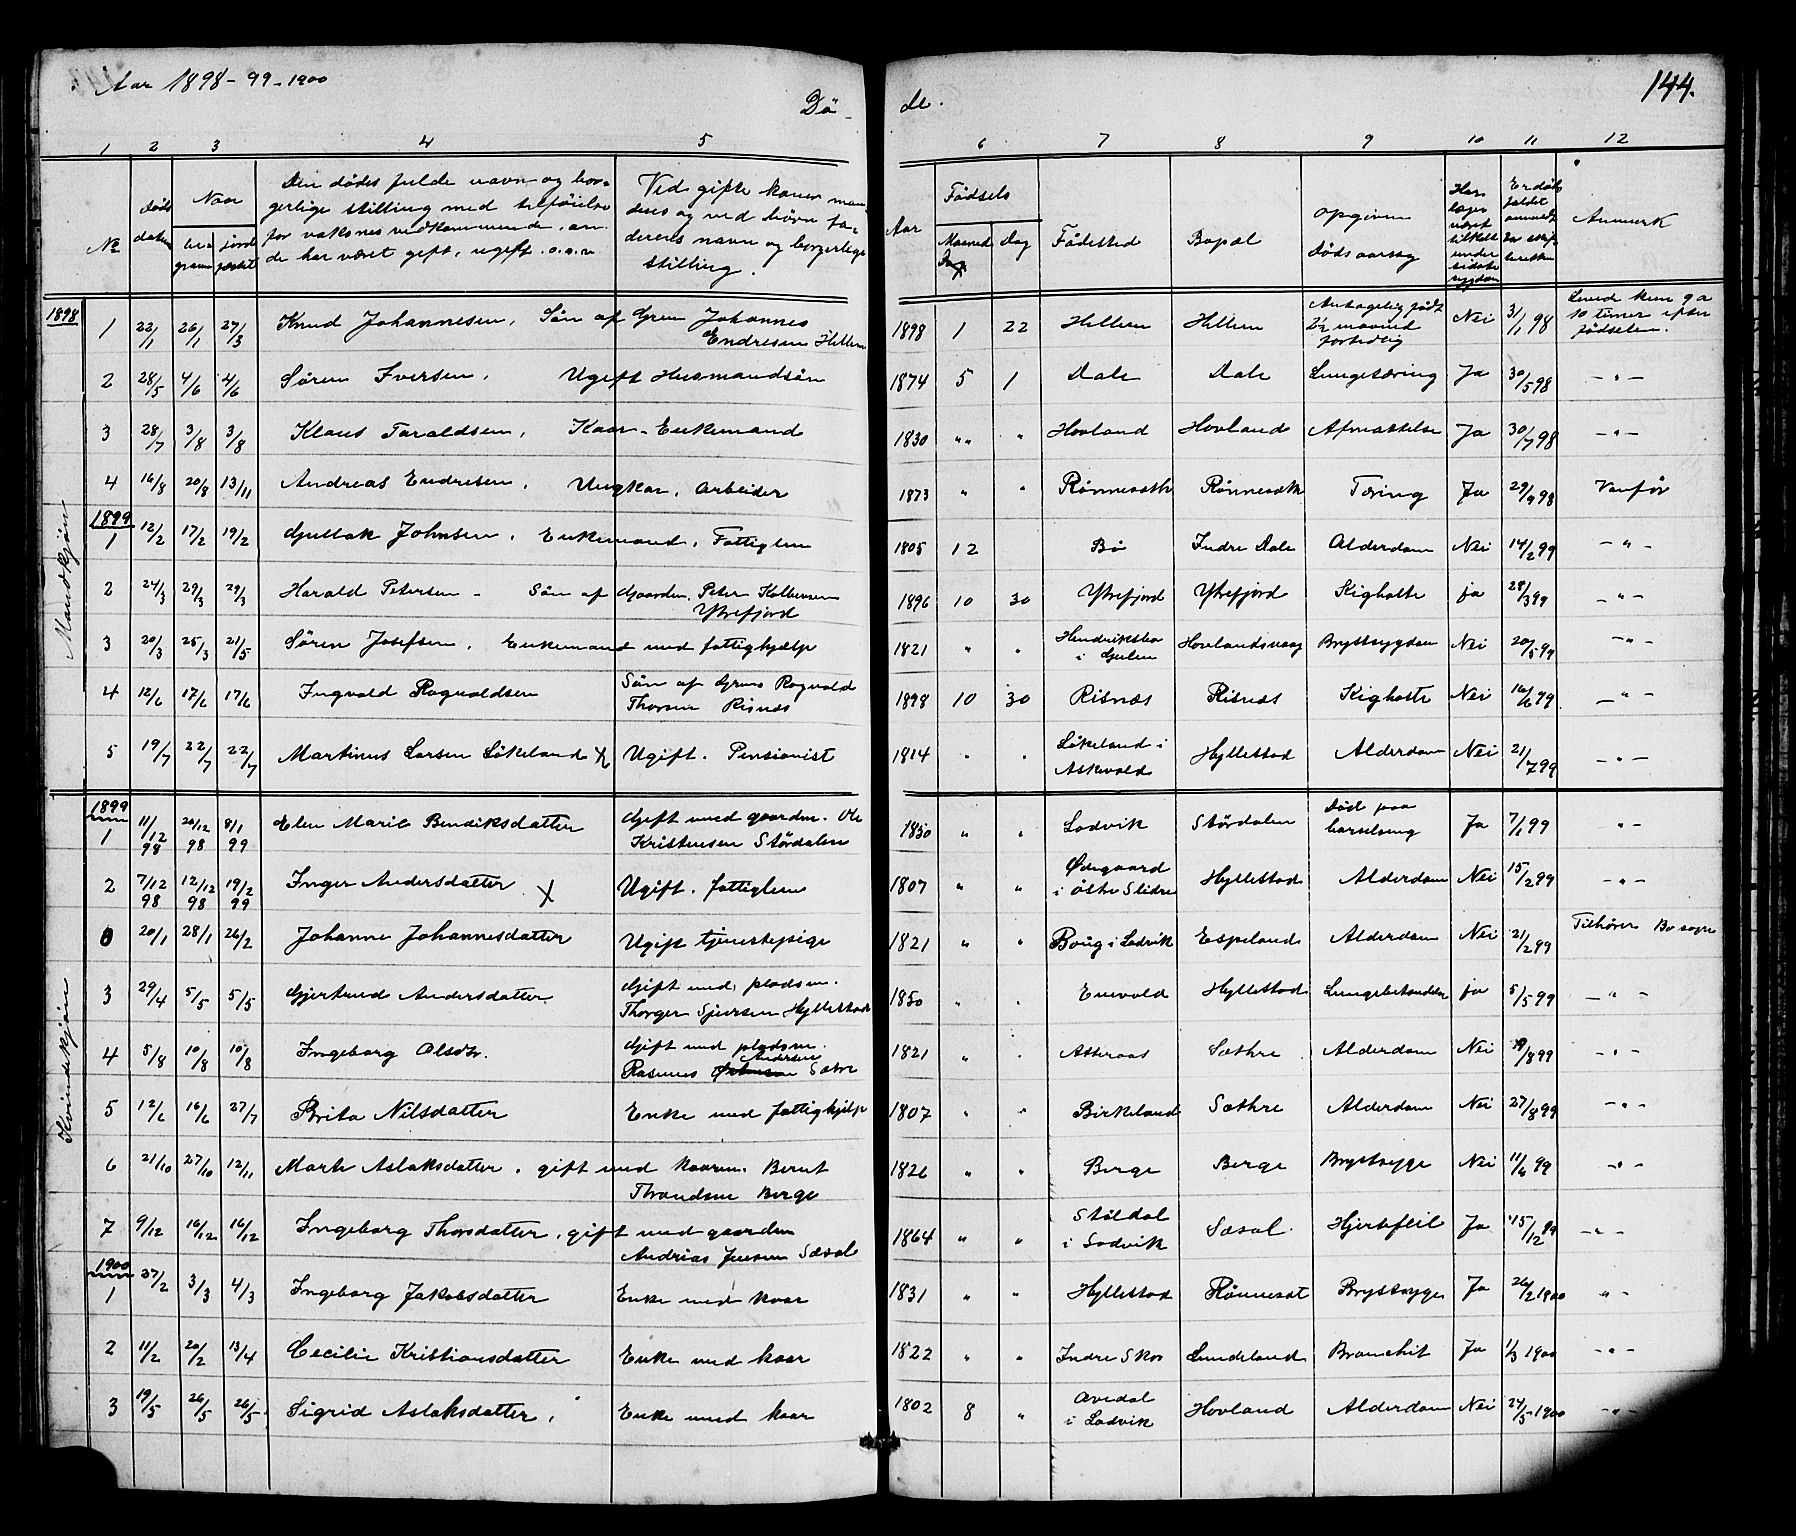 Aar 1898-99-1900
Dø-de.
144.
1 2 3 4 5 6 7 8 9 10 11 12
№ Døds datum Naar begraven jordfæstet Den dødes fulde navn og borgerlige stilling med tilføielse for voksnes vedkommende, om de har været gift, ugift. o.s.v. Ved gifte koner mandens og ved børn faderens navn og borgerlige stilling. Aar Fødsels Maaned Dag Fødested Bopæl opgiven Dødsaarsag Anmerk
Mandkjøn
1898
1 22/1 26/1 27/3 Knud Johannesen, Søn af Grm Johannes Endresen Hillem 1898 1 22 Hillem Hillem Antagelig født 2½ maaned fortidlig Nei 31/1 98 Levede kun 9 a 10 timer efter fødselen.
2 28/5 4/6 4/6 Søren Iversen, Ugift Husmandsøn 1874 5 1 Dale Dale Lungetæring Ja 30/5 98 -"-
3 28/7 3/8 3/8 Klaus Taraldsen, Kaar-Enkemand 1830 " " Hovland Hovland Afmattelse Ja 30/7 98 -"-
4 16/8 20/8 13/11 Andreas Endresen, Ungkar, Arbeider 1873 " " Rønnesæth Rønnesæth Tæring Ja 29/9 98 Vanfør
1899
1 12/2 17/2 19/2 Gullak Johnsen, Enkemand, Fattiglem 1805 12 Bø Indre Dale Alderdom Nei 14/2 99 -"-
2 24/3 29/3 29/3 Harald Petersen - Søn af Gaardm. Peter Kolbensen Ytrefjord 1896 10 30 Ytrefjord Ytrefjord Kighoste ja 28/3 99 -"-
3 20/3 25/3 21/5 Søren Josefsen, Enkemand med fattighjælp 1821 " " Hendriksbo i Gulen Hovlandsvaag Brystsygdom Nei 20/5 99 -"-
4 12/6 17/6 17/6 Ingvald Rognvaldsen Søn af Grms Rognvald Thorsen Risnes 1898 10 30 Risnæs Risnæs Kighoste Nei 16/6 99 -"-
5 19/7 22/7 22/7 Martinus Larsen Løkeland X Ugift. Pensionist 1814 " " Løkeland i Askevold Hyllestad Alderdom Nei 21/7 99 -"-
Kvindekjøn
1899
1 11/12 98 26/12 98 8/1 99 Elen Marie Bendiksdatter Gift med gaardm. Ole Kristensen Størdalen 1850 " " Ladvik Størdalen Død paa barselseng Ja 7/1 99 "-
2 7/12 98 12/12 98 19/2 99 Inger Andersdatter X Ugift. fattiglem 1807 " " Ødegaard i østre Slidre Hyllestad Alderdom Nei 15/2 99 -"-
0 20/1 28/1 26/2 Johanne Johannesdatter Ugift tjenestepige 1821 " " Boug i Ladvik Espeland Alderdom Nei 21/2 99 Tilhører Bø sogn
3 29/4 5/5 5/5 Gjertrud Andersdatter Gift med pladsm. Thorger Sjursen Hyllestad 1850 " " Enevold Hyllestad Lungebetændelse ja 5/5 99 -"-
4 5/8 10/8 10/8 Ingeborg Olsdtr. Gift med pladsm. Rasmus Andersen Sætre 1821 " " Atteraas Sæthre Alderdom Nei 9/8 99 -"-
5 12/6 16/6 27/7 Brita Nilsdatter Enke med fattighjelp 1807 " " Birkeland Sæthre Alderdom Nei 27/8 99 -"-
6 21/10 27/10 12/11 Marte Aslaksdatter, gift med kaarm. Bernt Thrandsen Berge 1826 " " Berge Berge Brystsyge Nei 11/6 99 -"-
7 9/12 16/12 16/12 Ingeborg Thorsdatter, gift med gaardm Andreas Jensen Sæsol 1864 " " Støldal i Ladvik Sæsol Hjertefeil Ja 15/12 99 -"-
1900
1 27/2 3/3 4/3 Ingeborg Jakobsdatter Enke med kaar 1831 " " Hyllestad Rønneset Brystsyge Ja 26/2 1900 "-
2 11/2 20/2 13/4 Cecilie Kristiansdatter Enke med kaar 1822 " " Indre Skor Lundeland Bronchit Ja 1/3 1900 -"-
3 19/5 26/5 26/5 Sigrid Aslaksdatter, Enke med kaar 1802 8 " Avedal i Ladvik Hovland Alderdom Nei 24/5-1900 -"-